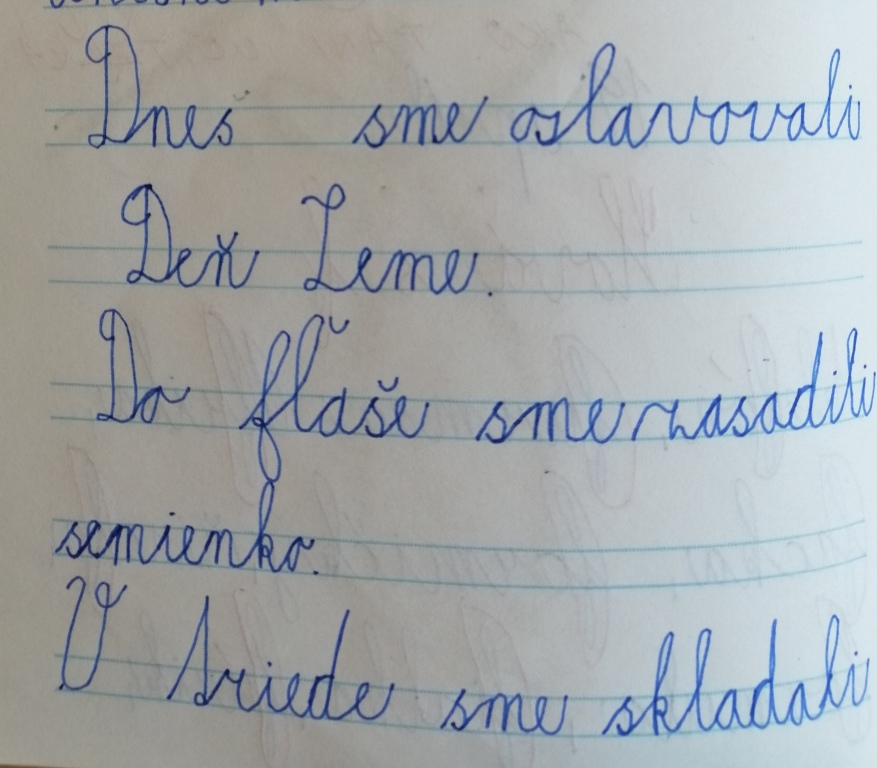 Dnes sme oslavovali
Deň Zeme.
Do fľaše sme zasadili
semienko.
V triede sme skladali